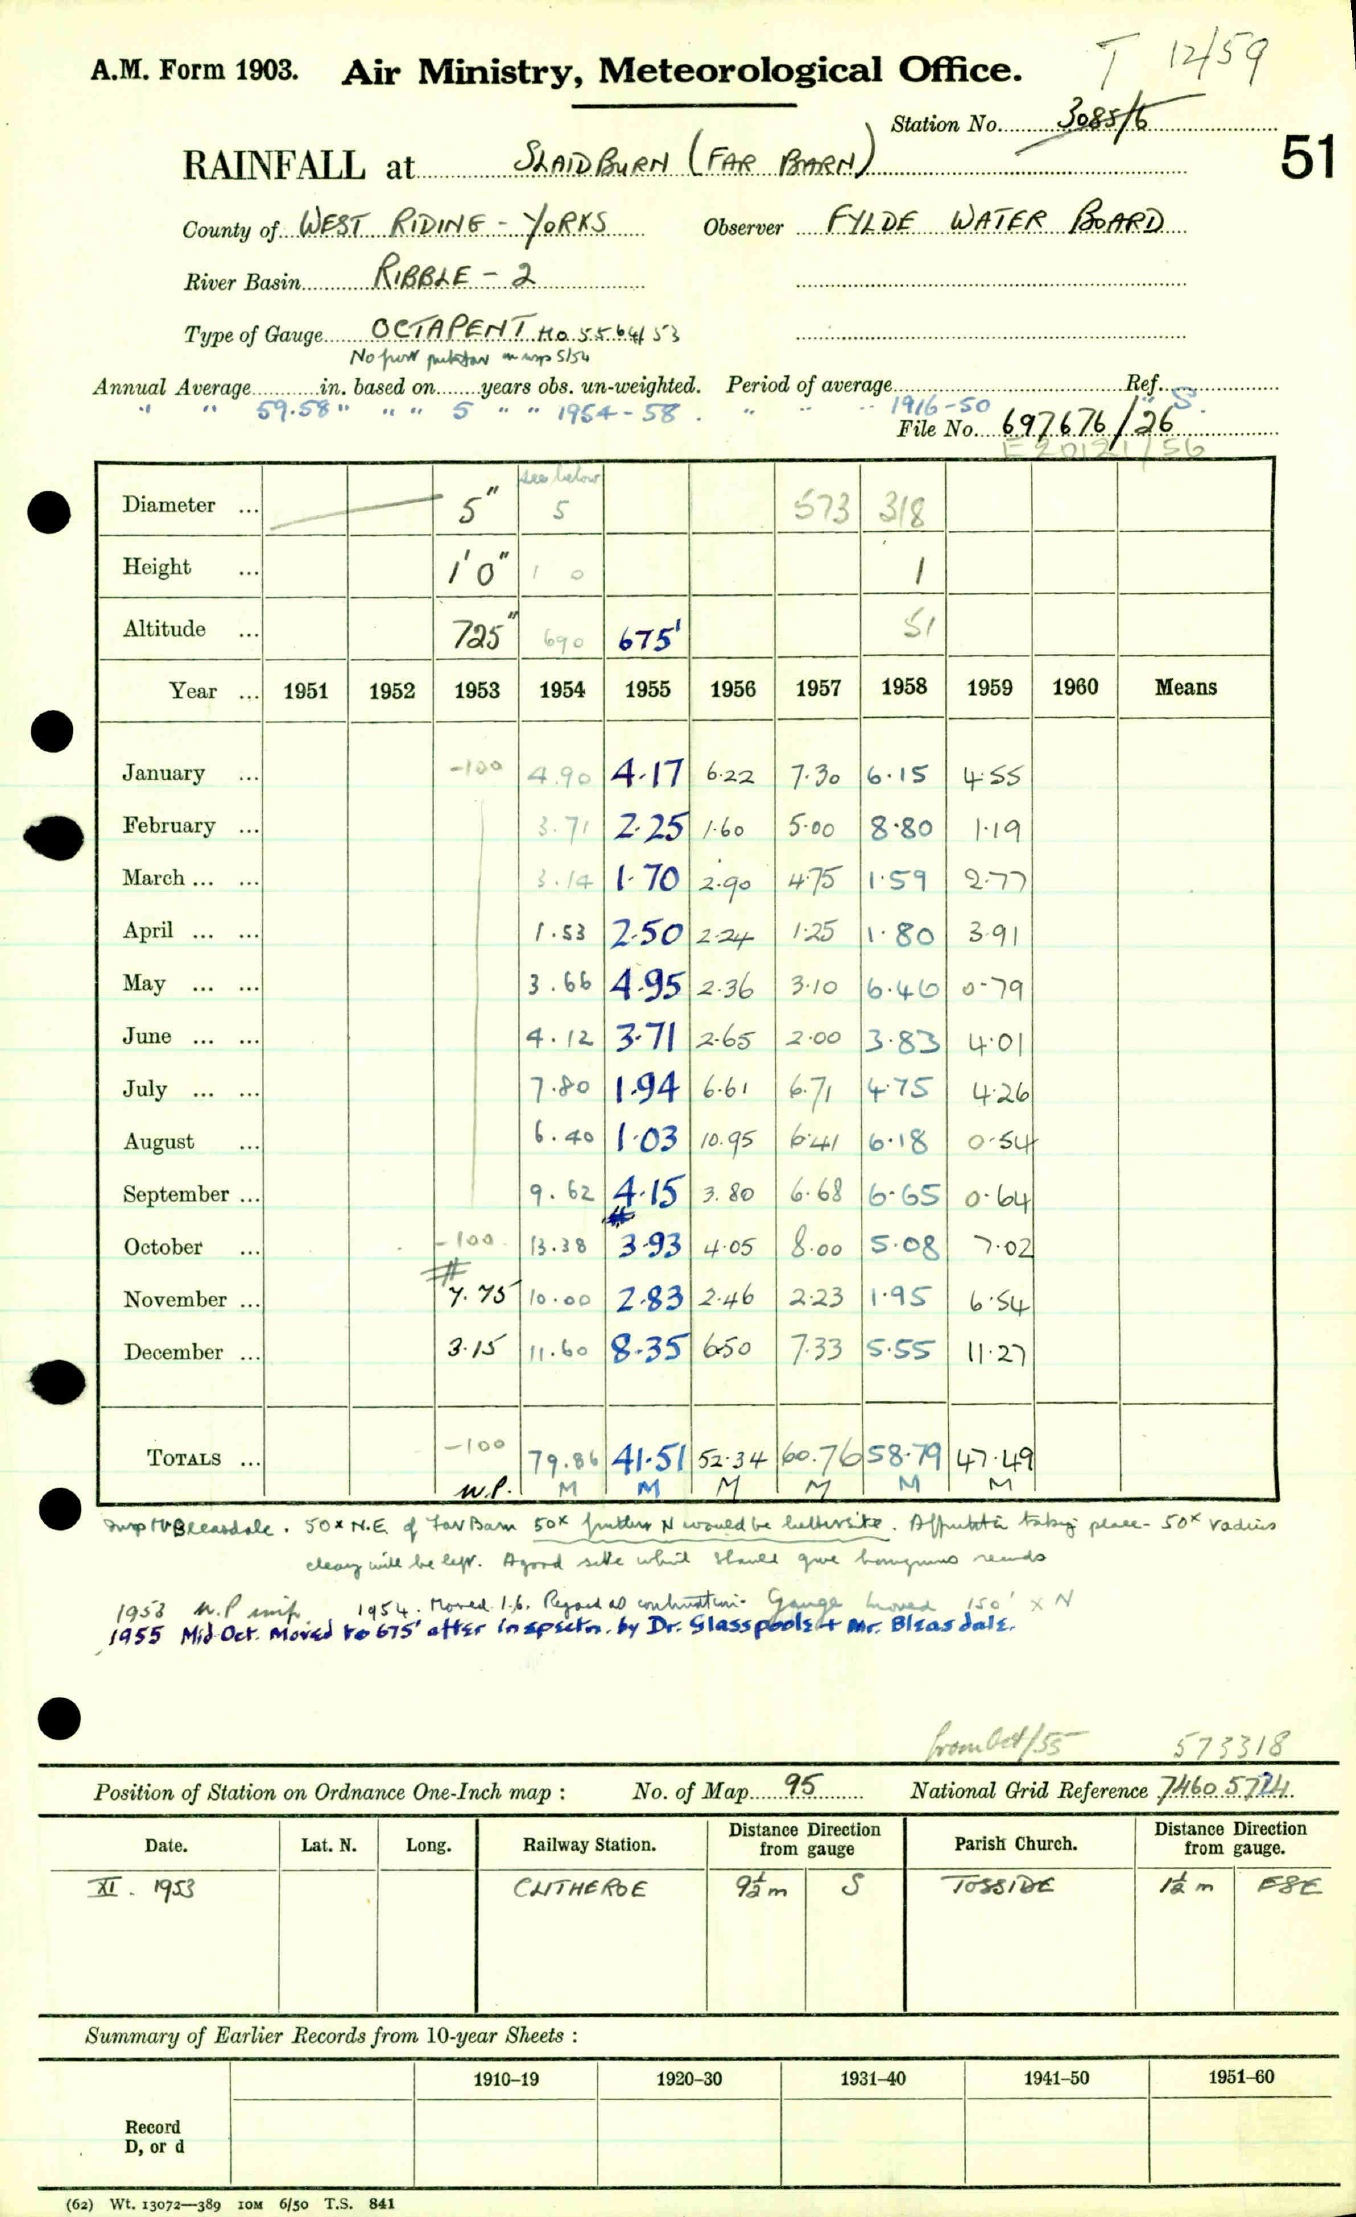 T 12/59
A.M. Form 1903. Air Ministry, Meteorological Office.
Station No. 3085/6
51
RAINFALL at SLAIDBURN (FAR BARN)
County of WEST RIDING - YORKS Observer FYLDE WATER BOARD
River Basin RIBBLE - 2
Type of Gauge OCTAPENT No 5564/53
Annual Average in. based on years obs. un-weighted. Period of average Ref.
" " 59.58" " " 5 " " 1954-58. " " " 1916-50 " S.
File No. 697676/26
E20121/56
see below
Diameter ... 5" 5 573 318
Height ... 1'0" 1 0 1
Altitude ... 725" 690 675' 51
Year ... 1951 1952 1953 1954 1955 1956 1957 1958 1959 1960 Means
January ... -100 4.90 4.17 6.22 7.30 6.15 4.55
February ... 3.71 2.25 1.60 5.00 8.80 1.19
March ... ... 3.14 1.70 2.90 4.75 1.59 2.77
April ... ... 1.53 2.50 2.24 1.25 1.80 3.91
May ... ... 3.66 4.95 2.36 3.10 6.46 0.79
June ... ... 4.12 3.71 2.65 2.00 3.83 4.01
July ... ... 7.80 1.94 6.61 6.71 4.75 4.26
August ... 6.40 1.03 10.95 6.41 6.18 0.54
September ... 9.62 4.15 3.80 6.68 6.65 0.64
October ... -100 13.38 3.93 4.05 8.00 5.08 7.02
November ... 7.75 10.00 2.83 2.46 2.23 1.95 6.54
December ... 3.15 11.60 8.35 6.50 7.33 5.55 11.27
TOTALS ... -100 79.86 41.51 52.34 60.76 58.79 47.49
n.p. M M M M M M
Bleasdale. 50x N.E. of Far Barn 50x further N would be better site. taking place - 50x radius
will be left. A good site which should give records
1953 n.p 1954. Moved 1.6. Regard as continuation. Gauge moved 150' x N
1955 Mid-Oct. Moved to 675' after inspectn. by Dr. Glasspoole + Mr. Bleasdale.
from Oct/55 573318
Position of Station on Ordnance One-Inch map : No. of Map 95 National Grid Reference 7460 5724
Date. Lat. N. Long. Railway Station. Distance Direction from gauge Parish Church. Distance Direction from gauge.
XI. 1953 CLITHEROE 9½ m S TOSSIDE 1½ m ESE
Summary of Earlier Records from 10-year Sheets :
1910–19 1920–30 1931–40 1941–50 1951–60
Record
D, or d
(62) Wt. 13072—389 10M 6/50 T.S. 841